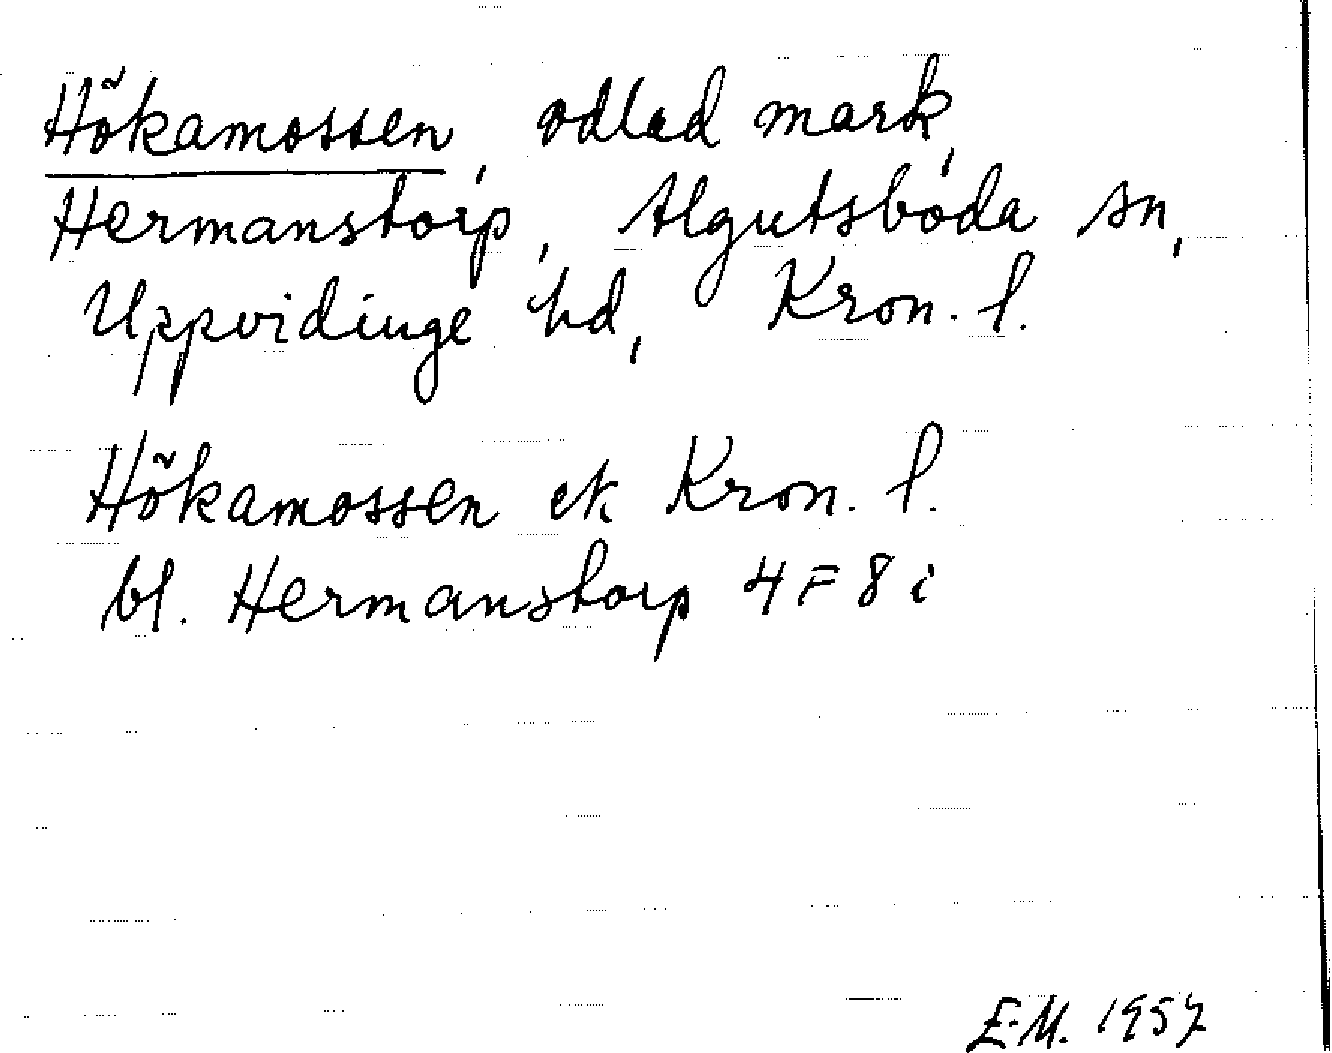 Hökamossen, odlad mark,
Hermanstorp, Algutsboda sn,
Uppvidinge hd, Kron. l.
Hökamossen ek Kron. l.
bl. Hermanstorp 4F8i
E.M. 1957